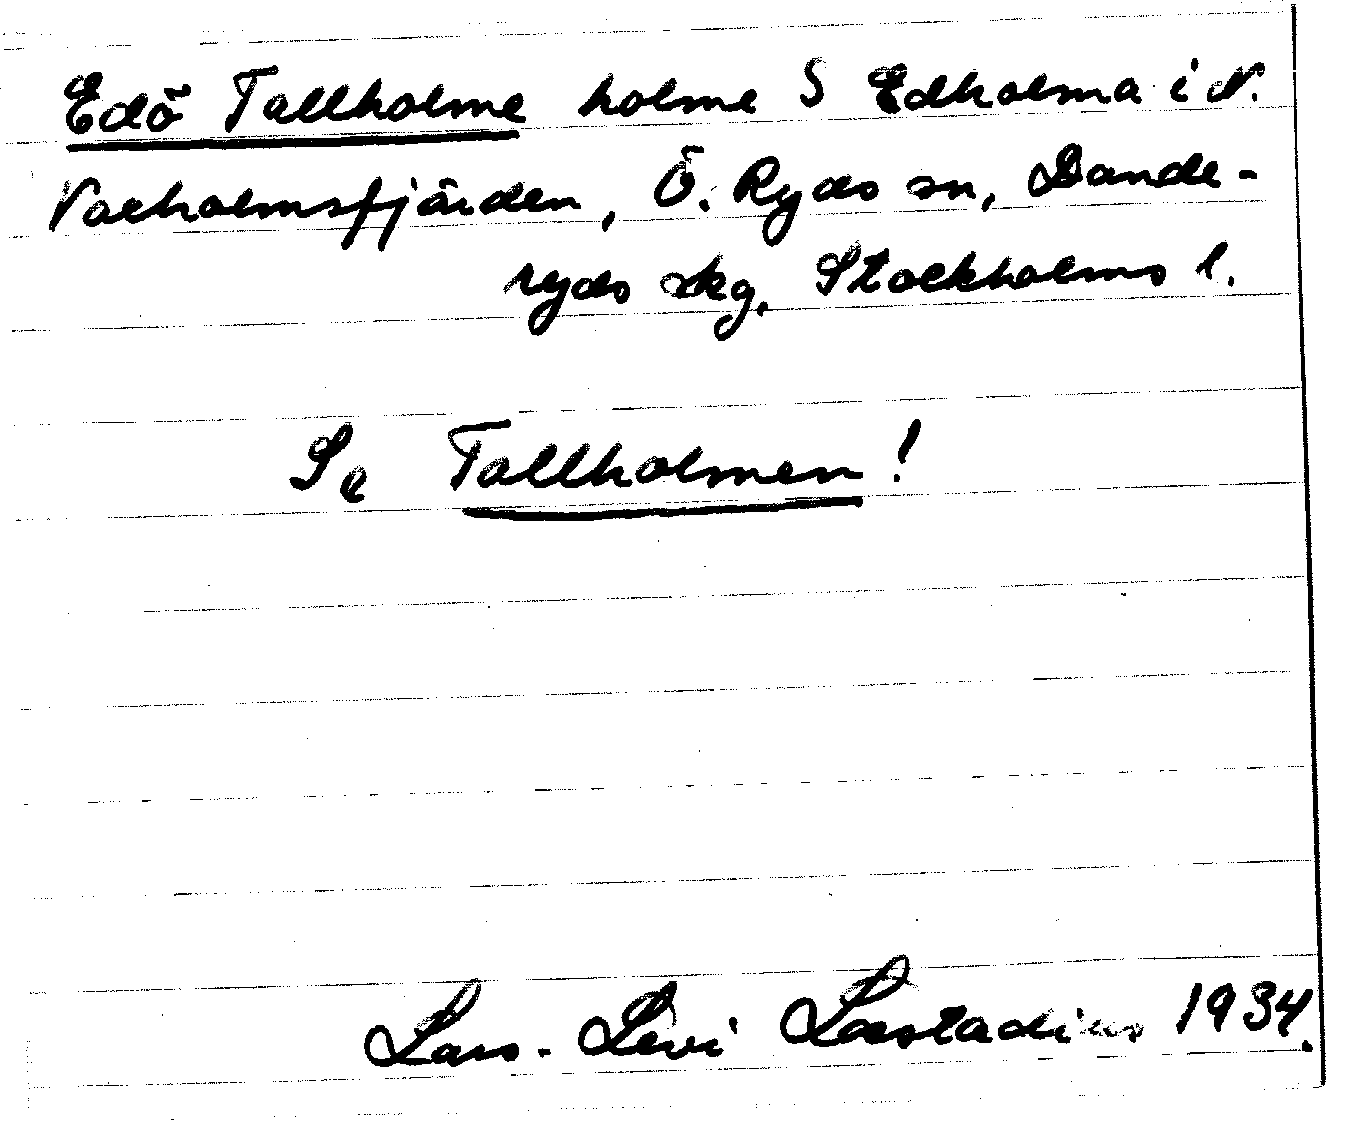 Edö Tallholme holme S Edholma i N.
Vaxholmsfjärden, Ö. Ryds sn, Dande-
ryds skg, Stockholms l.
Se Tallholmen!
Lars-Levi Læstadius 1934.